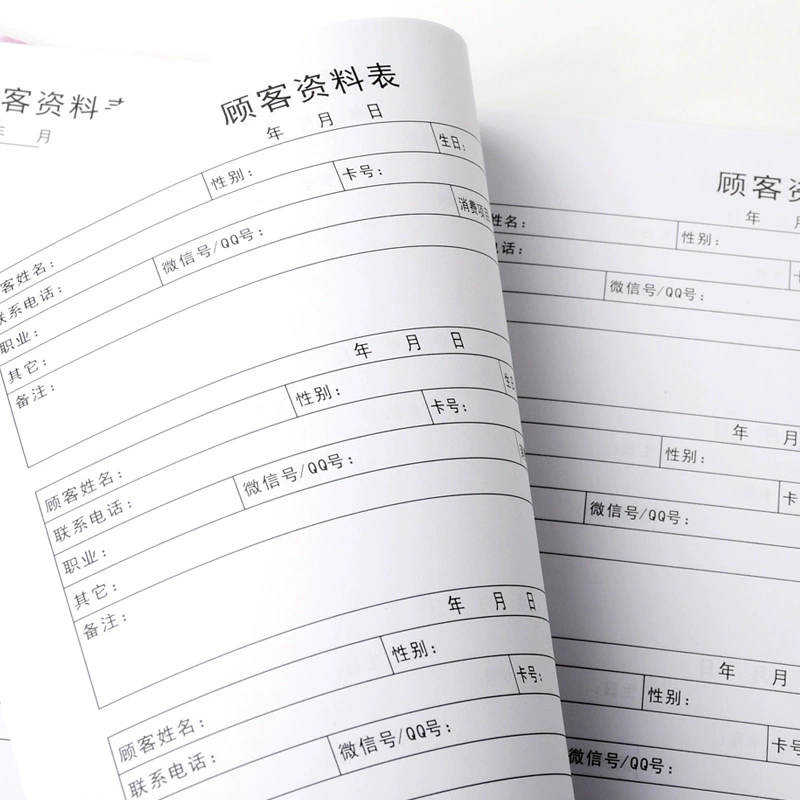 客资料
年 月
顾客资料表
年 月 日
顾客姓名： 性别： 生日：
联系电话： 卡号：
职业： 微信号/QQ号： 消费项目
其它：
备注：
年 月 日
顾客姓名： 性别： 生日
联系电话： 卡号：
职业： 微信号/QQ号：
其它：
备注：
年 月 日
顾客姓名： 性别：
联系电话： 卡号：
微信号/QQ号：
顾客资
年 月
姓名： 性别：
话： 卡
微信号/QQ号：
年 月
性别：
卡
微信号/QQ号：
年 月
性别：
卡号
微信号/QQ号：